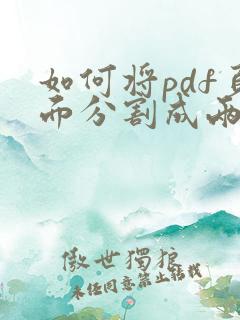 如何将pdf页
面分割成两
傲世独狼
未经同意禁止转载